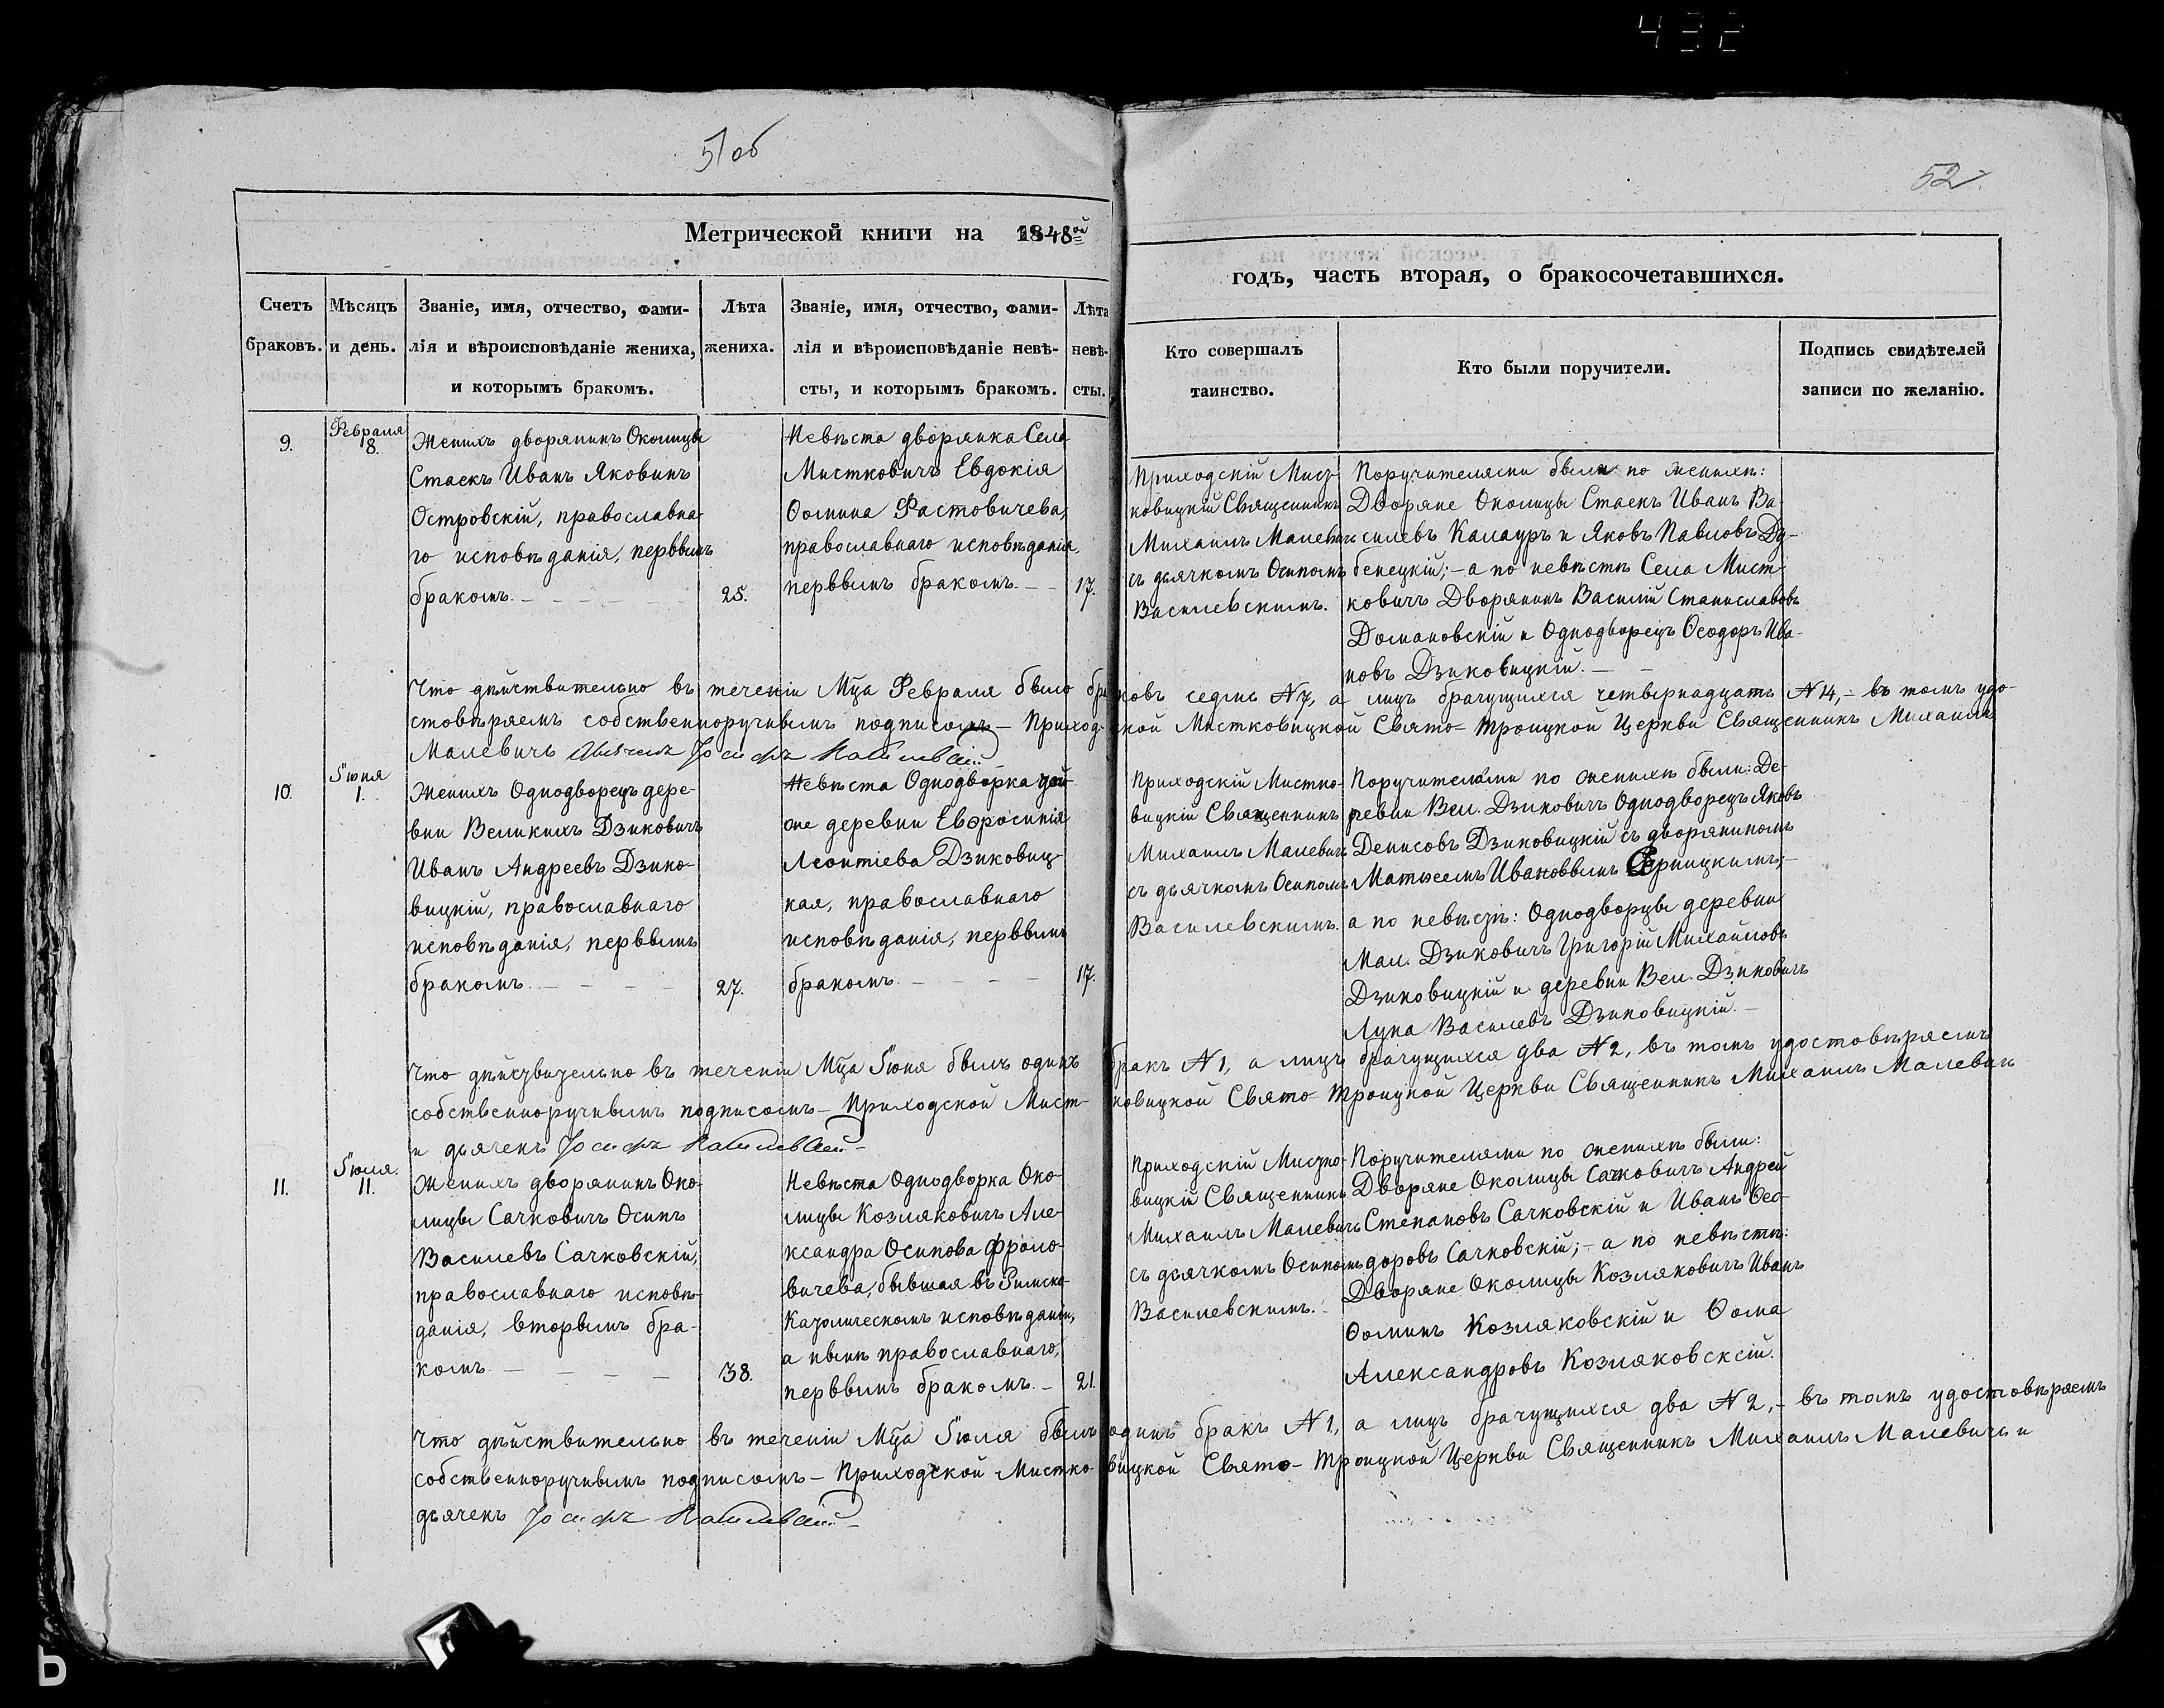 432
51 об
52.
Метрической книги на 1848ой
годъ, часть вторая, о бракосочетавшихся.
Счетъ браковъ.
Мѣсяцъ и день.
Званіе, имя, отчество, фами-
лія и вѣроисповѣданіе жениха,
и которымъ бракомъ.
Лѣта
жениха.
Званіе, имя, отчество, фами-
лія и вѣроисповѣданіе невѣ-
сты, и которымъ бракомъ.
Лѣта
невѣ-
сты.
Кто совершалъ
таинство.
Кто были поручители.
Подпись свидѣтелей
записи по желанію.
9.
Февраля
8.
Женихъ дворянинъ Околицы
Стаекъ Иванъ Яковинъ
Островскій, православна-
го исповѣданія, первымъ
бракомъ.
25.
Невѣста дворянка Села
Мистковичъ Евдокія
Ѳомина Фастовичева,
православнаго исповѣданія,
первымъ бракомъ.
17.
Приходскій Мист-
ковицкій Священникъ
Михаилъ Малевичъ
съ дьячкомъ Осипомъ
Василевскимъ.
Поручителями были по женихѣ:
Дворяне Околицы Стаекъ Иванъ Ва-
силевъ Калауръ и Яковъ Павловъ Ду-
бенецкій; - а по невѣстѣ Села Мист-
ковичъ Дворянинъ Василій Станиславовъ
Домановскій и Однодворецъ Ѳеодоръ Ива-
новъ Дзиковицкій.
Что дѣйствительно въ теченіи Мца Февраля было браковъ седмь №7, а лицъ брачущихся четырнадцать №14, - въ томъ удо-
стовѣряемъ собственноручнымъ подписомъ - Приходской Мистковицкой Свято-Троицкой Церкви Священникъ Михаилъ
Малевичъ Дьячекъ Іосифъ Василевскій
10.
Іюня
1.
Женихъ Однодворецъ дере-
вни Великихъ Дзиковичъ
Иванъ Андреевъ Дзико-
вицкій, православнаго
исповѣданія, первымъ
бракомъ.
27.
Невѣста Однодворка той-
же деревни Евфросинія
Леонтіева Дзиковиц-
кая, православнаго
исповѣданія, первымъ
бракомъ.
17.
Приходскій Мистко-
вицкій Священникъ
Михаилъ Малевичъ
съ дьячкомъ Осипомъ
Василевскимъ.
Поручителями по женихѣ были: Де-
ревни Вел. Дзиковичъ Однодворецъ Яковъ
Денисовъ Дзиковицкій съ дворяниномъ
Матвеемъ Ивановымъ Серницкимъ; -
а по невѣстѣ: Однодворцы деревни
Мал. Дзиковичъ Григорій Михайловъ
Дзиковицкій и деревни Вел. Дзиковичъ
Лука Василевъ Дзиковицкій.
Что дѣйствительно въ теченіи Мца Іюня былъ одинъ бракъ №1, а лицъ брачущихся два №2, въ томъ удостовѣряемъ
собственноручнымъ подписомъ - Приходской Мистковицкой Свято-Троицкой Церкви Священникъ Михаилъ Малевичъ
и дьячекъ Іосифъ Василевскій
11.
Іюля.
11.
Женихъ дворянинъ Око-
лицы Сачковичъ Осипъ
Василевъ Сачковскій,
православнаго исповѣ-
данія, вторымъ бра-
комъ.
38.
Невѣста Однодворка Око-
лицы Козляковичъ Але-
ксандра Осипова Фроло-
вичева, бывшая въ Римско-
Католическомъ исповѣданіи,
а нынѣ православнаго,
первымъ бракомъ.
21.
Приходскій Мистко-
вицкій Священникъ
Михаилъ Малевичъ
съ дьячкомъ Осипомъ
Василевскимъ.
Поручителями по женихѣ были:
Дворяне Околицы Сачковичъ Андрей
Степановъ Сачковскій и Иванъ Ѳео-
доровъ Сачковскій; - а по невѣстѣ:
Дворяне Околицы Козляковичъ Иванъ
Ѳоминъ Козляковскій и Ѳома
Александровъ Козляковскій.
Что дѣйствительно въ теченіи Мца Іюля былъ одинъ бракъ №1, а лицъ брачущихся два №2, - въ томъ удостовѣряемъ
собственноручнымъ подписомъ - Приходской Мистковицкой Свято-Троицкой Церкви Священникъ Михаилъ Малевичъ и
дьячекъ Іосифъ Василевскій